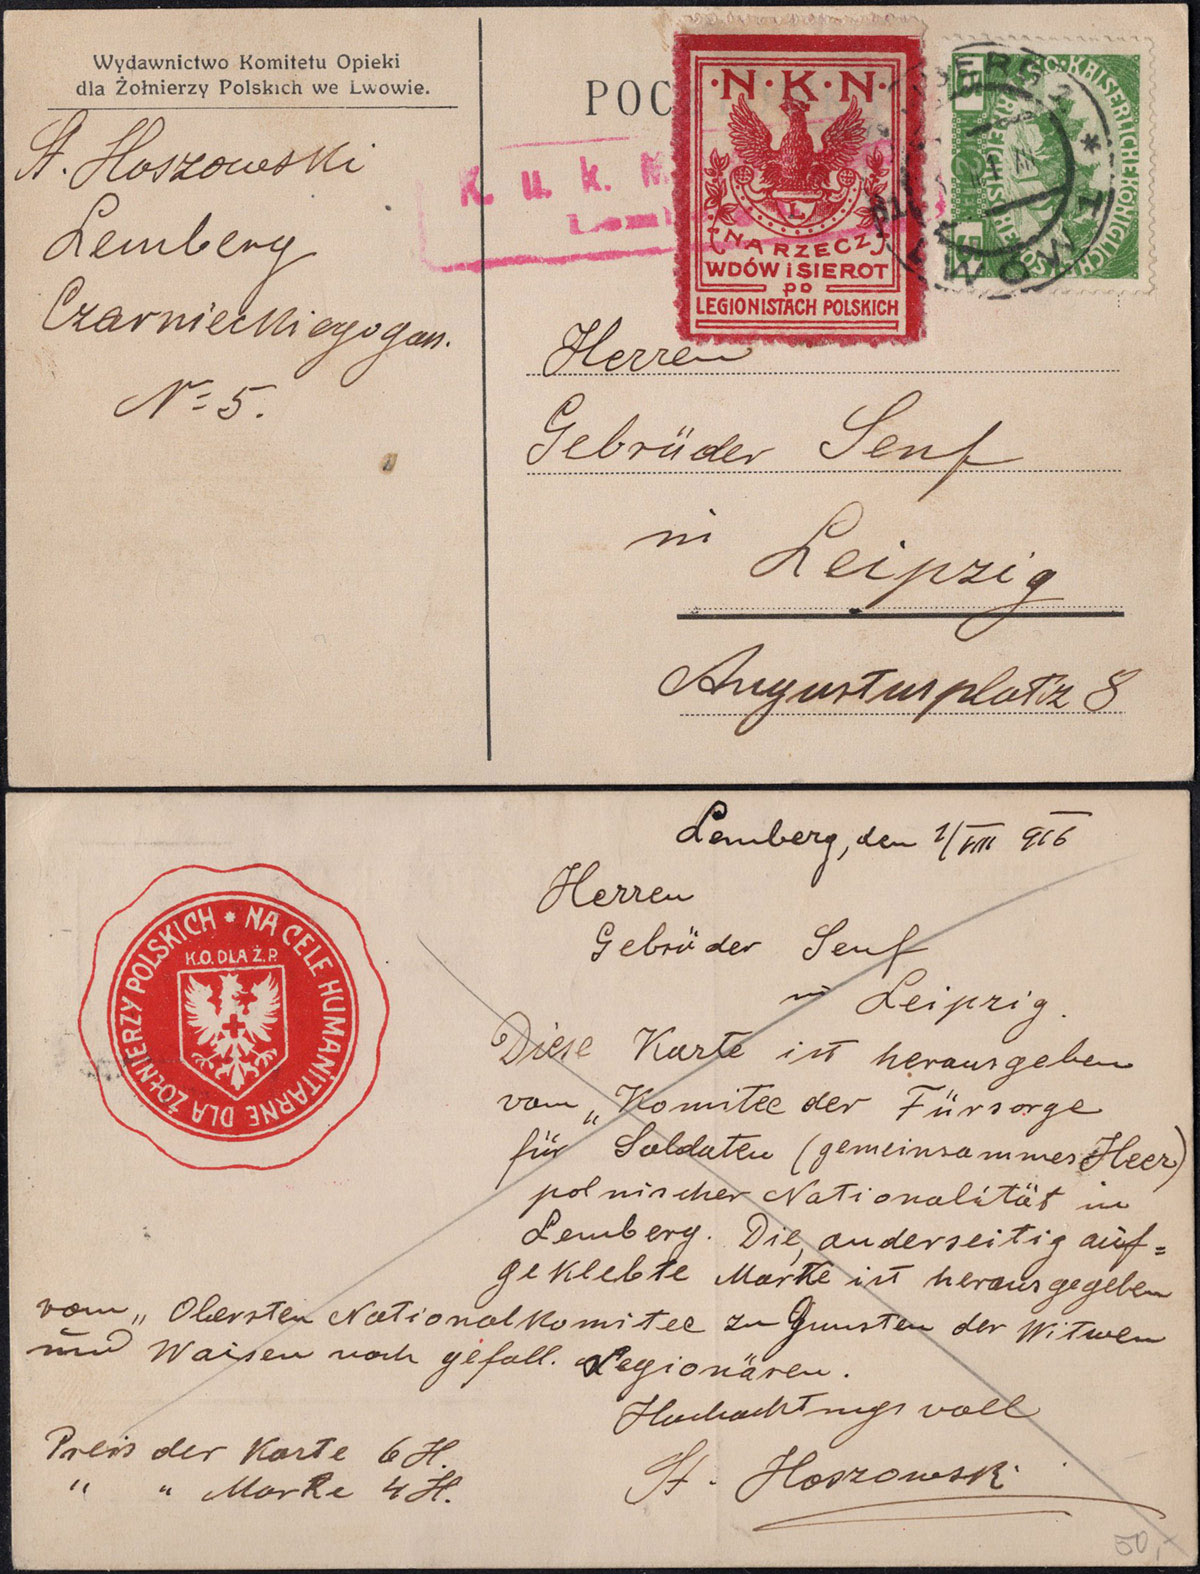 Wydawnictwo Komitetu Opieki
dla Żołnierzy Polskich we Lwowie.
St. Hoszowski
Lemberg
Czarnieckiegogass.
N= 5.
POC
K. u. k. M
Lem
·N·K·N·
L
NA RZECZ
WDÓW i SIEROT
po
LEGIONISTACH POLSKICH
KAISERLICHE KÖNIGLICHE
LWOW
Herren
Gebrüder Senf
in Leipzig
Augustusplatz 8
Lemberg, den 1/VIII 916
Herren
Gebrüder Senf
in Leipzig.
NA CELE HUMANITARNE DLA ŻOŁNIERZY POLSKICH *
K.O. DLA Ż.P.
Diese Karte ist herausgeben
vom „Komitee der Fürsorge
für Soldaten (gemeinsammes Heer)
polnischer Nationalität in
Lemberg. Die, anderseitig auf=
geklebte Marke ist herausgegeben
vom „Obersten Nationalkomitee zu Gunsten der Witwen
und Waisen nach gefall. Legionären.
Hochachtungsvoll
St. Hoszowski
Preis der Karte 6 H.
" " Marke 4 H.
50,-